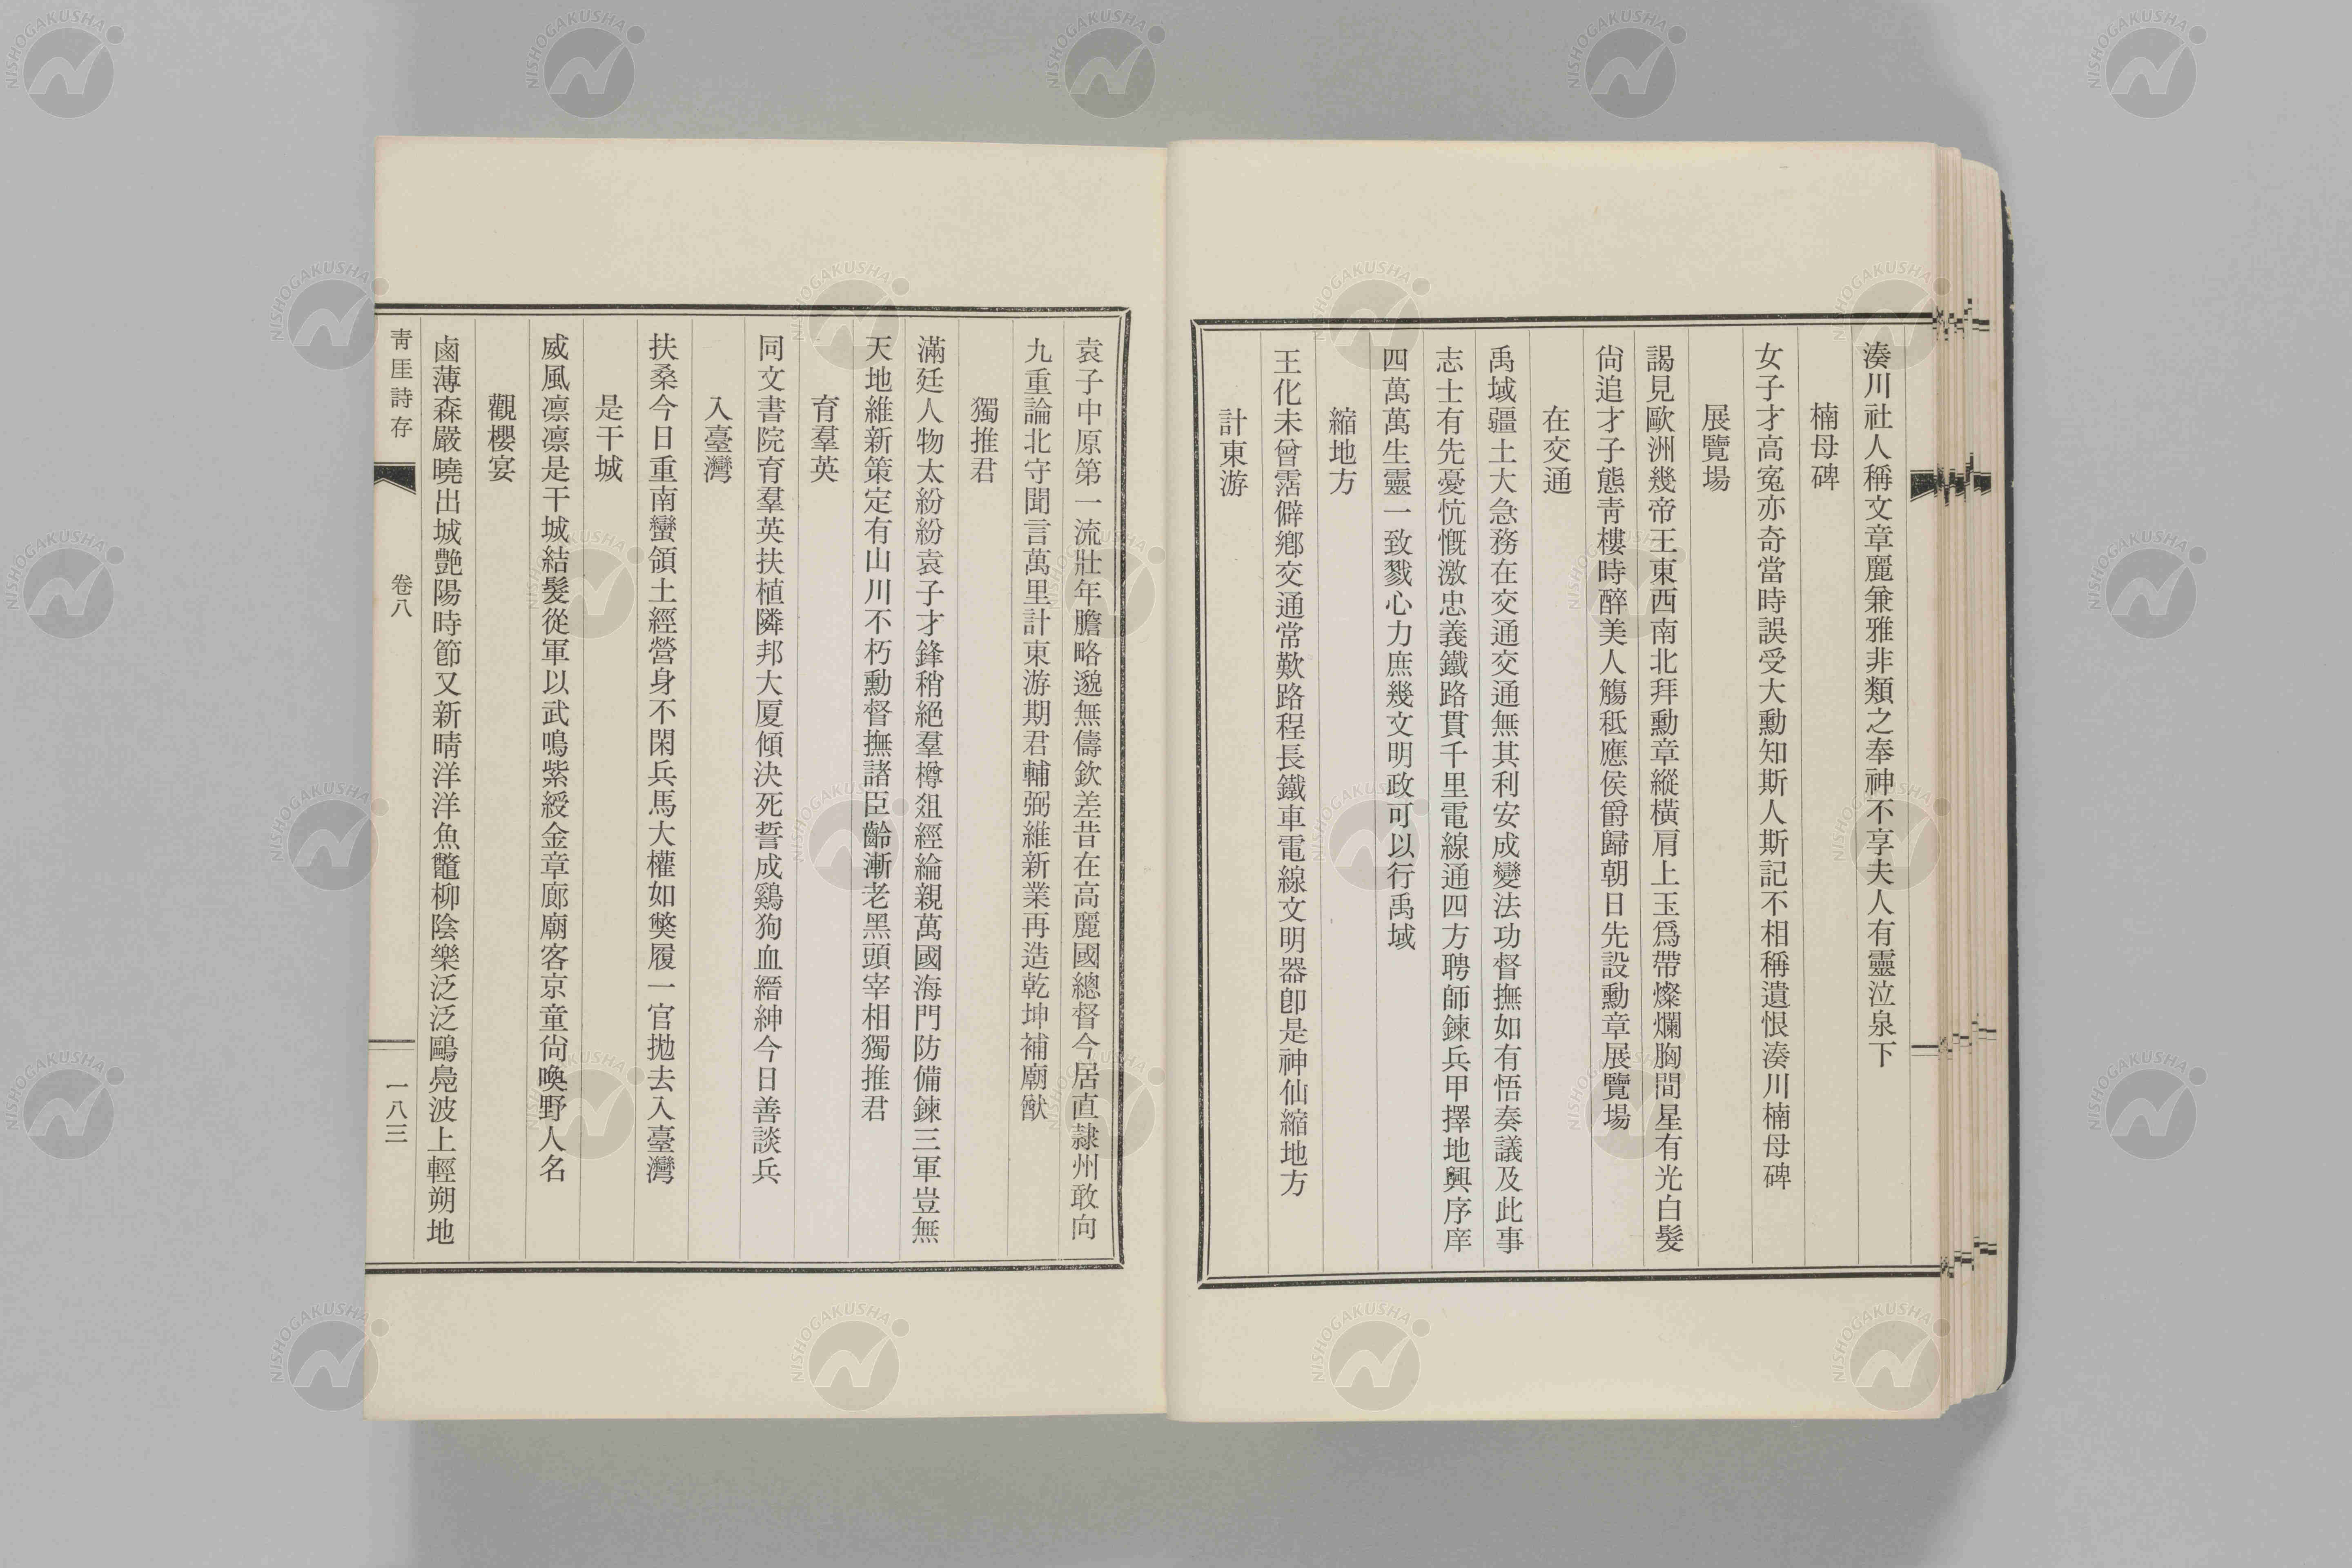 湊川社人稱文章麗兼雅非類之奉神不享夫人有靈泣泉下
楠母碑
女子才高冤亦奇當時誤受大勳知斯人斯記不相稱遺恨湊川楠母碑
展覽場
謁見歐洲幾帝王東西南北拜勳章縱橫肩上玉爲帶燦爛胸間星有光白髮
尙追才子態靑樓時醉美人觴秪應侯爵歸朝日先設勳章展覽場
在交通
禹域疆土大急務在交通交通無其利安成變法功督撫如有悟奏議及此事
志士有先憂忼慨激忠義鐵路貫千里電線通四方聘師鍊兵甲擇地興序庠
四萬萬生靈一致戮心力庶幾文明政可以行禹域
縮地方
王化未曾霑僻鄕交通常歎路程長鐵車電線文明器卽是神仙縮地方
計東游
袁子中原第一流壯年膽略邈無儔欽差昔在高麗國總督今居直隷州敢向
九重論北守聞言萬里計東游期君輔弼維新業再造乾坤補廟猷
獨推君
滿廷人物太紛紛袁子才鋒稍絕羣樽俎經綸親萬國海門防備鍊三軍豈無
天地維新策定有山川不朽勳督撫諸臣齡漸老黑頭宰相獨推君
育羣英
同文書院育羣英扶植隣邦大厦傾決死誓成鷄狗血縉紳今日善談兵
入臺灣
扶桑今日重南蠻領土經營身不閑兵馬大權如獘履一官拋去入臺灣
是干城
威風凛凛是干城結髮從軍以武鳴紫綬金章廊廟客京童尙喚野人名
觀櫻宴
鹵薄森嚴曉出城艷陽時節又新晴洋洋魚鼈柳陰樂泛泛鷗鳧波上輕朔地
靑厓詩存
卷八
一八三
NISHOGAKUSHA